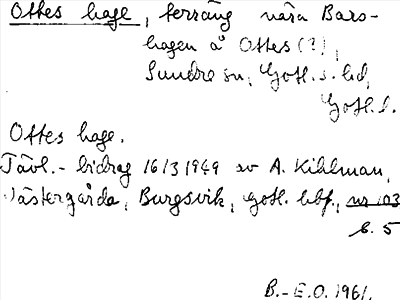 Ottes hage, terräng nära Bars-
hagen å Ottes (?),
Sundre sn, Gotl. s. hd,
Gotl. l.
Ottes hage.
Tävl.-bidrag 16/3 1949 av A. Kihlman,
Västergårda, Burgsvik, Gotl. hbf., nr 103
s. 5
B.-E.O. 1961.